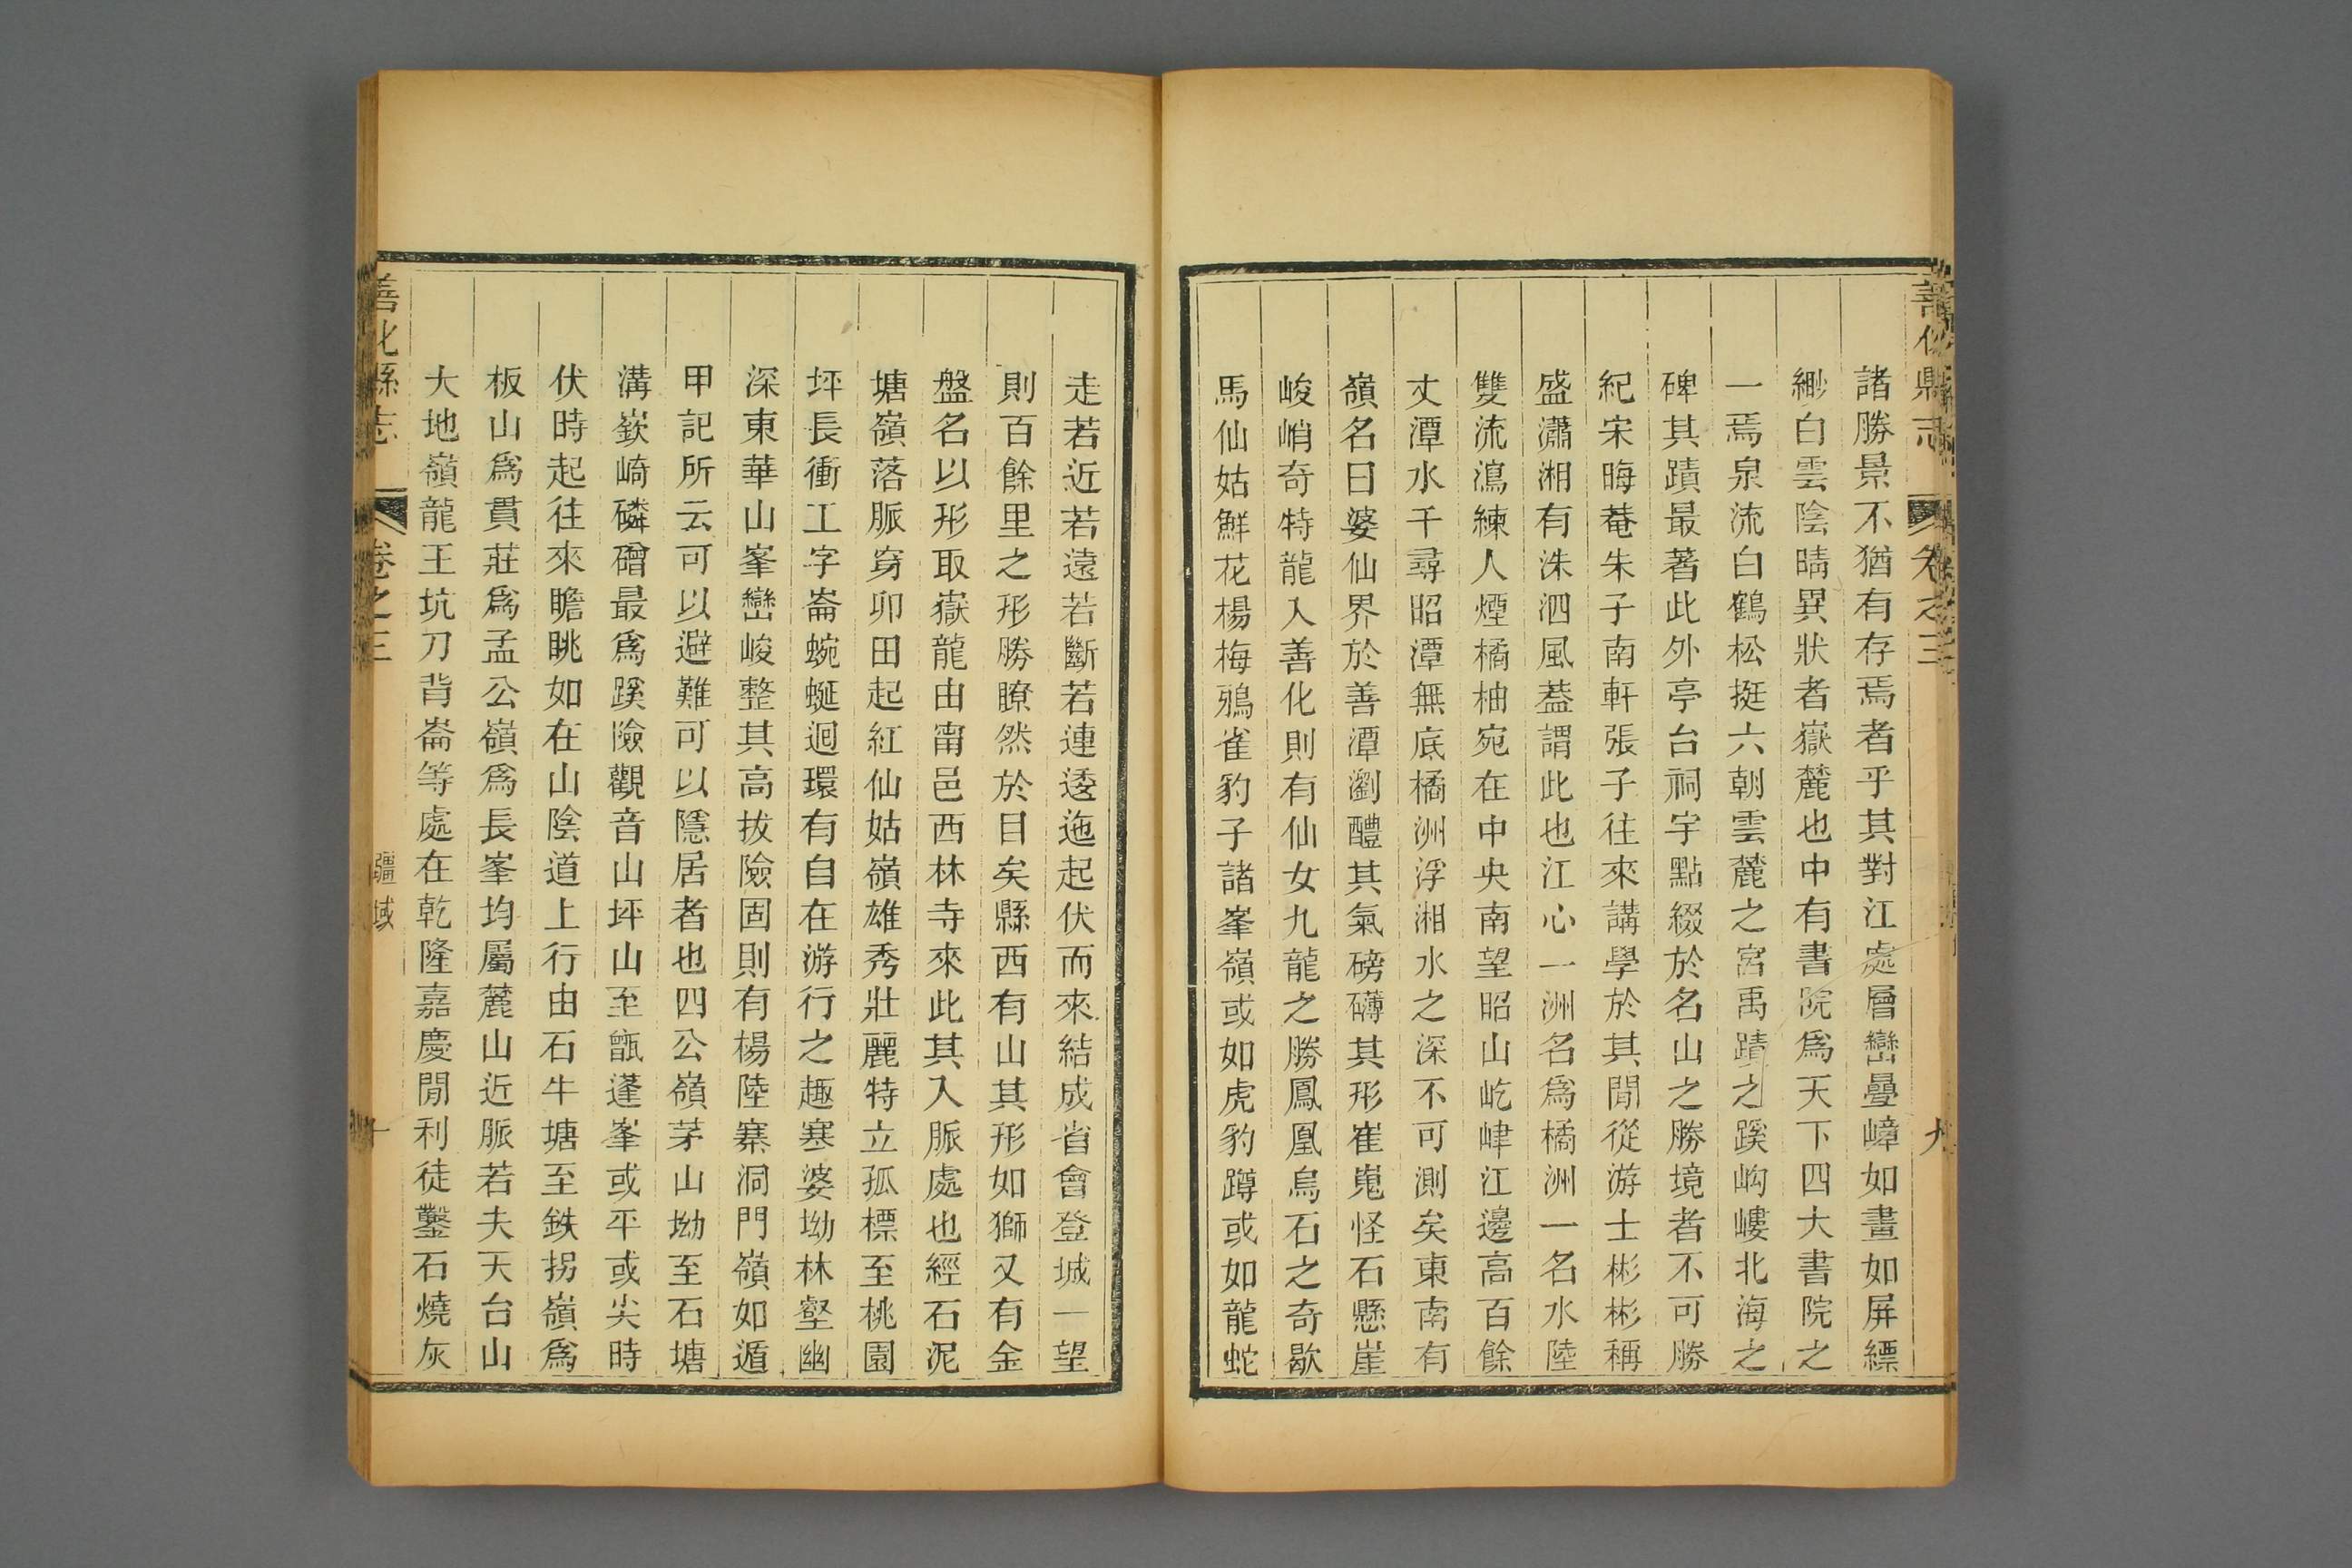 善化縣志
卷之三
九
諸勝景不猶有存焉者乎其對江處層巒疊嶂如畫如屏縹
緲白雲陰晴異狀者嶽麓也中有書院爲天下四大書院之
一焉泉流白鶴松挺六朝雲麓之宮禹蹟之蹊岣嶁北海之
碑其蹟最著此外亭台祠宇點綴於名山之勝境者不可勝
紀宋晦菴朱子南軒張子往來講學於其閒從游士彬彬稱
盛瀟湘有洙泗風葢謂此也江心一洲名爲橘洲一名水陸
雙流瀉練人煙橘柚宛在中央南望昭山屹峍江邊高百餘
丈潭水千尋昭潭無底橘洲浮湘水之深不可測矣東南有
嶺名曰婆仙界於善潭瀏醴其氣磅礴其形崔嵬怪石懸崖
峻峭奇特龍入善化則有仙女九龍之勝鳳凰烏石之奇歇
馬仙姑鮮花楊梅鴉雀豹子諸峯嶺或如虎豹蹲或如龍蛇
走若近若遠若斷若連逶迤起伏而來結成省會登城一望
則百餘里之形勝瞭然於目矣縣西有山其形如獅又有金
盤名以形取嶽龍由甯邑西林寺來此其入脈處也經石泥
塘嶺落脈穿卯田起紅仙姑嶺雄秀壯麗特立孤標至桃園
坪長衝工字崙蜿蜒迴環有自在游行之趣寒婆坳林壑幽
深東華山峯巒峻整其高拔險固則有楊陸寨洞門嶺如遁
甲記所云可以避難可以隱居者也四公嶺茅山坳至石塘
溝嶔崎磷磳最爲蹊險觀音山坪山至甑蓬峯或平或尖時
伏時起往來瞻眺如在山陰道上行由石牛塘至鉄拐嶺爲
板山爲貫莊爲孟公嶺爲長峯均屬麓山近脈若夫天台山
大地嶺龍王坑刀背崙等處在乾隆嘉慶閒利徒鑿石燒灰
善化縣志
卷之三
疆域
十